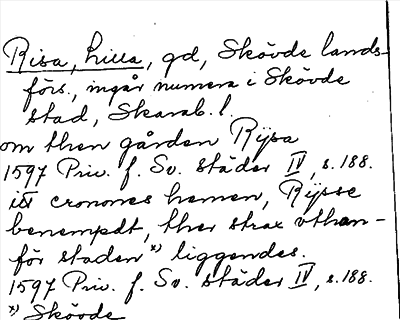 Risa, Lilla, gd, Skövde lands-
förs., ingår numera i Skövde
stad, Skarab. l.
om then gården Rÿsa
1597 Priv. f. Sv. städer IV, s. 188.
itt cronones hemen, Rÿsse
benempdt, ther strax vthan-
för staden *) liggendes.
1597 Priv. f. Sv. städer IV, s. 188.
*) Skövde